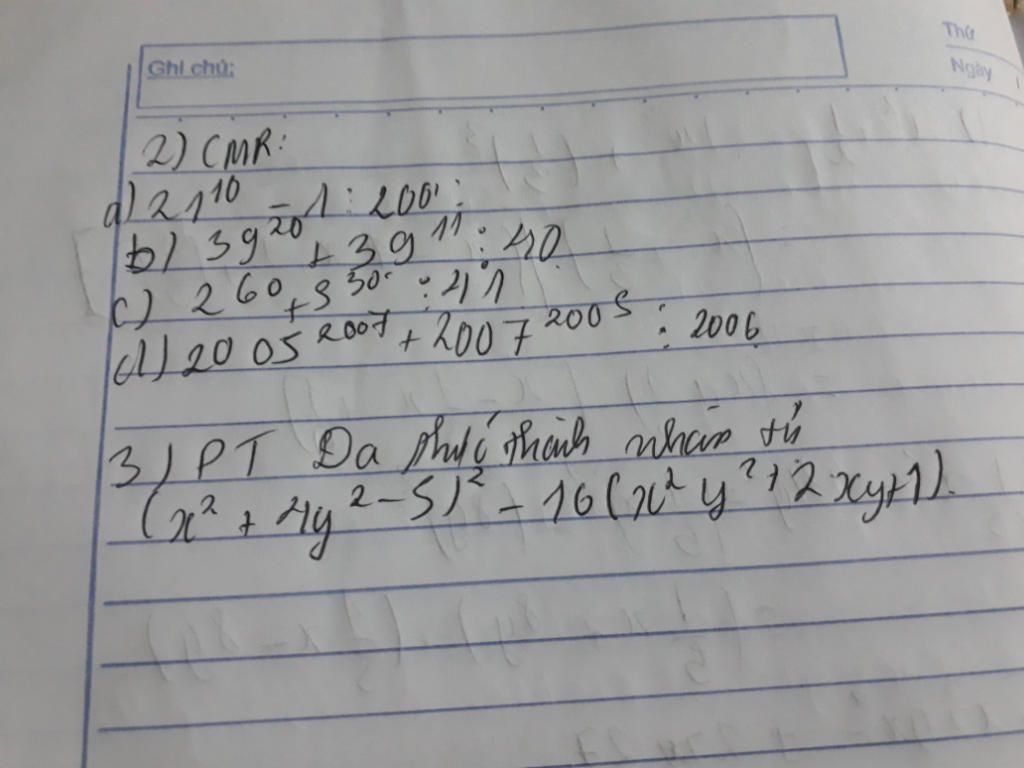 Thứ
Ghi chú:
Ngày
2) CMR:
a) 21¹⁰ - 1 ⋮ 200
b) 39²⁰ + 39¹¹ ⋮ 40
c) 2⁶⁰ + 3³⁰ ⋮ 41
d) 2005²⁰⁰⁷ + 2007²⁰⁰⁵ ⋮ 2006
3) PT Đa thức thành nhân tử
(x² + 4y² - 5)² - 16(x²y² + 2xy + 1).